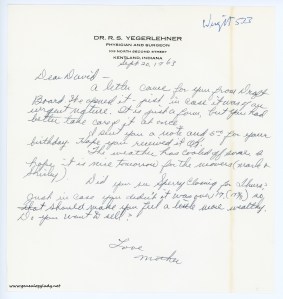 Wright 523
DR. R. S. YEGERLEHNER
PHYSICIAN AND SURGEON
NORTH SECOND STREET
KENTLAND, INDIANA
Sept 20, 1963
Dear David –
A letter came for you from Draft
Board. We opened it – just in case it was of an
urgent nature. It's just a form, but you had
better take care of it at once.
I sent you a note and 5.00 for your
birthday. Hope you received it OK.
The weather has cooled off some &
hope it is nice tomorrow for the movers (Mark &
Shirley)
Did you see Sperry closing for a share –
Just in case you didn't it was
that should make you feel a little more wealthy.
Do you want to sell?
Love,
Mother
www.genealogylady.net